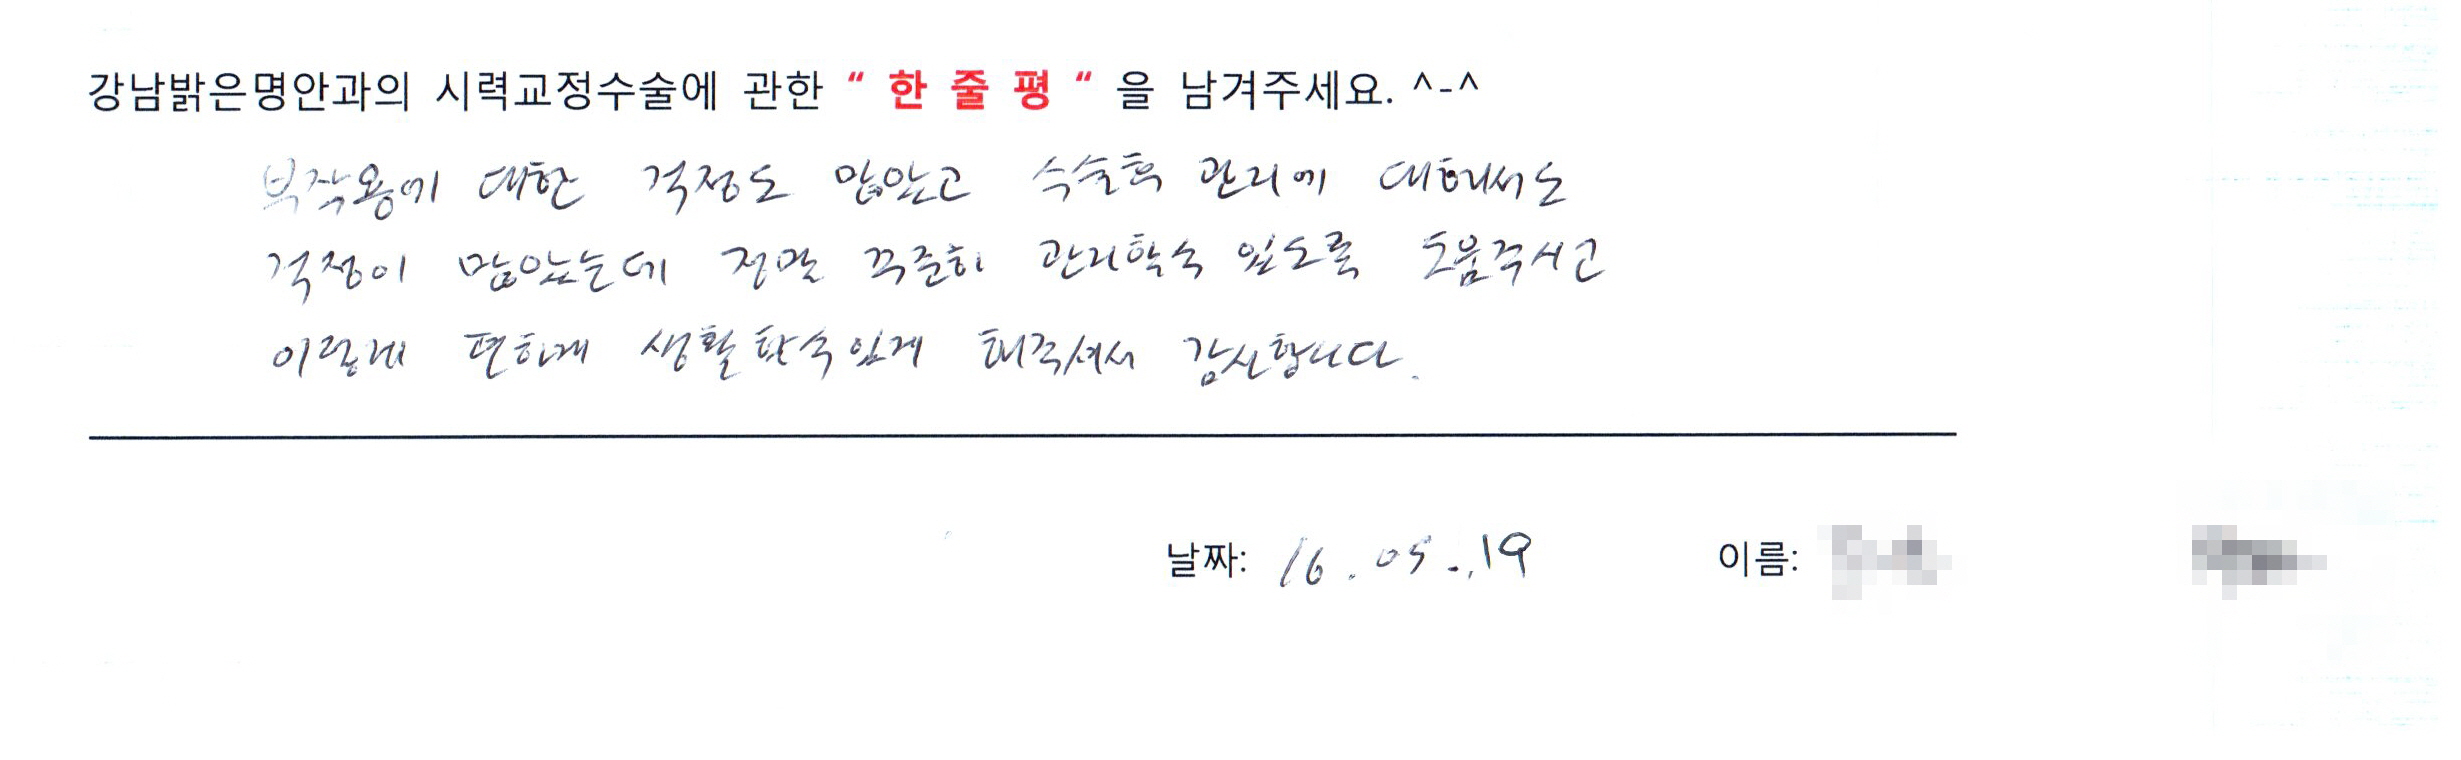 강남밝은명안과의 시력교정수술에 관한 “ 한 줄 평 “ 을 남겨주세요. ^-^
부작용에 대한 걱정도 많았고 수술후 관리에 대해서도
걱정이 많았는데 정말 꾸준히 관리할수 있도록 도움주시고
이렇게 편하게 생활할수있게 해주셔서 감사합니다.
날짜: 16.05.19 이름: